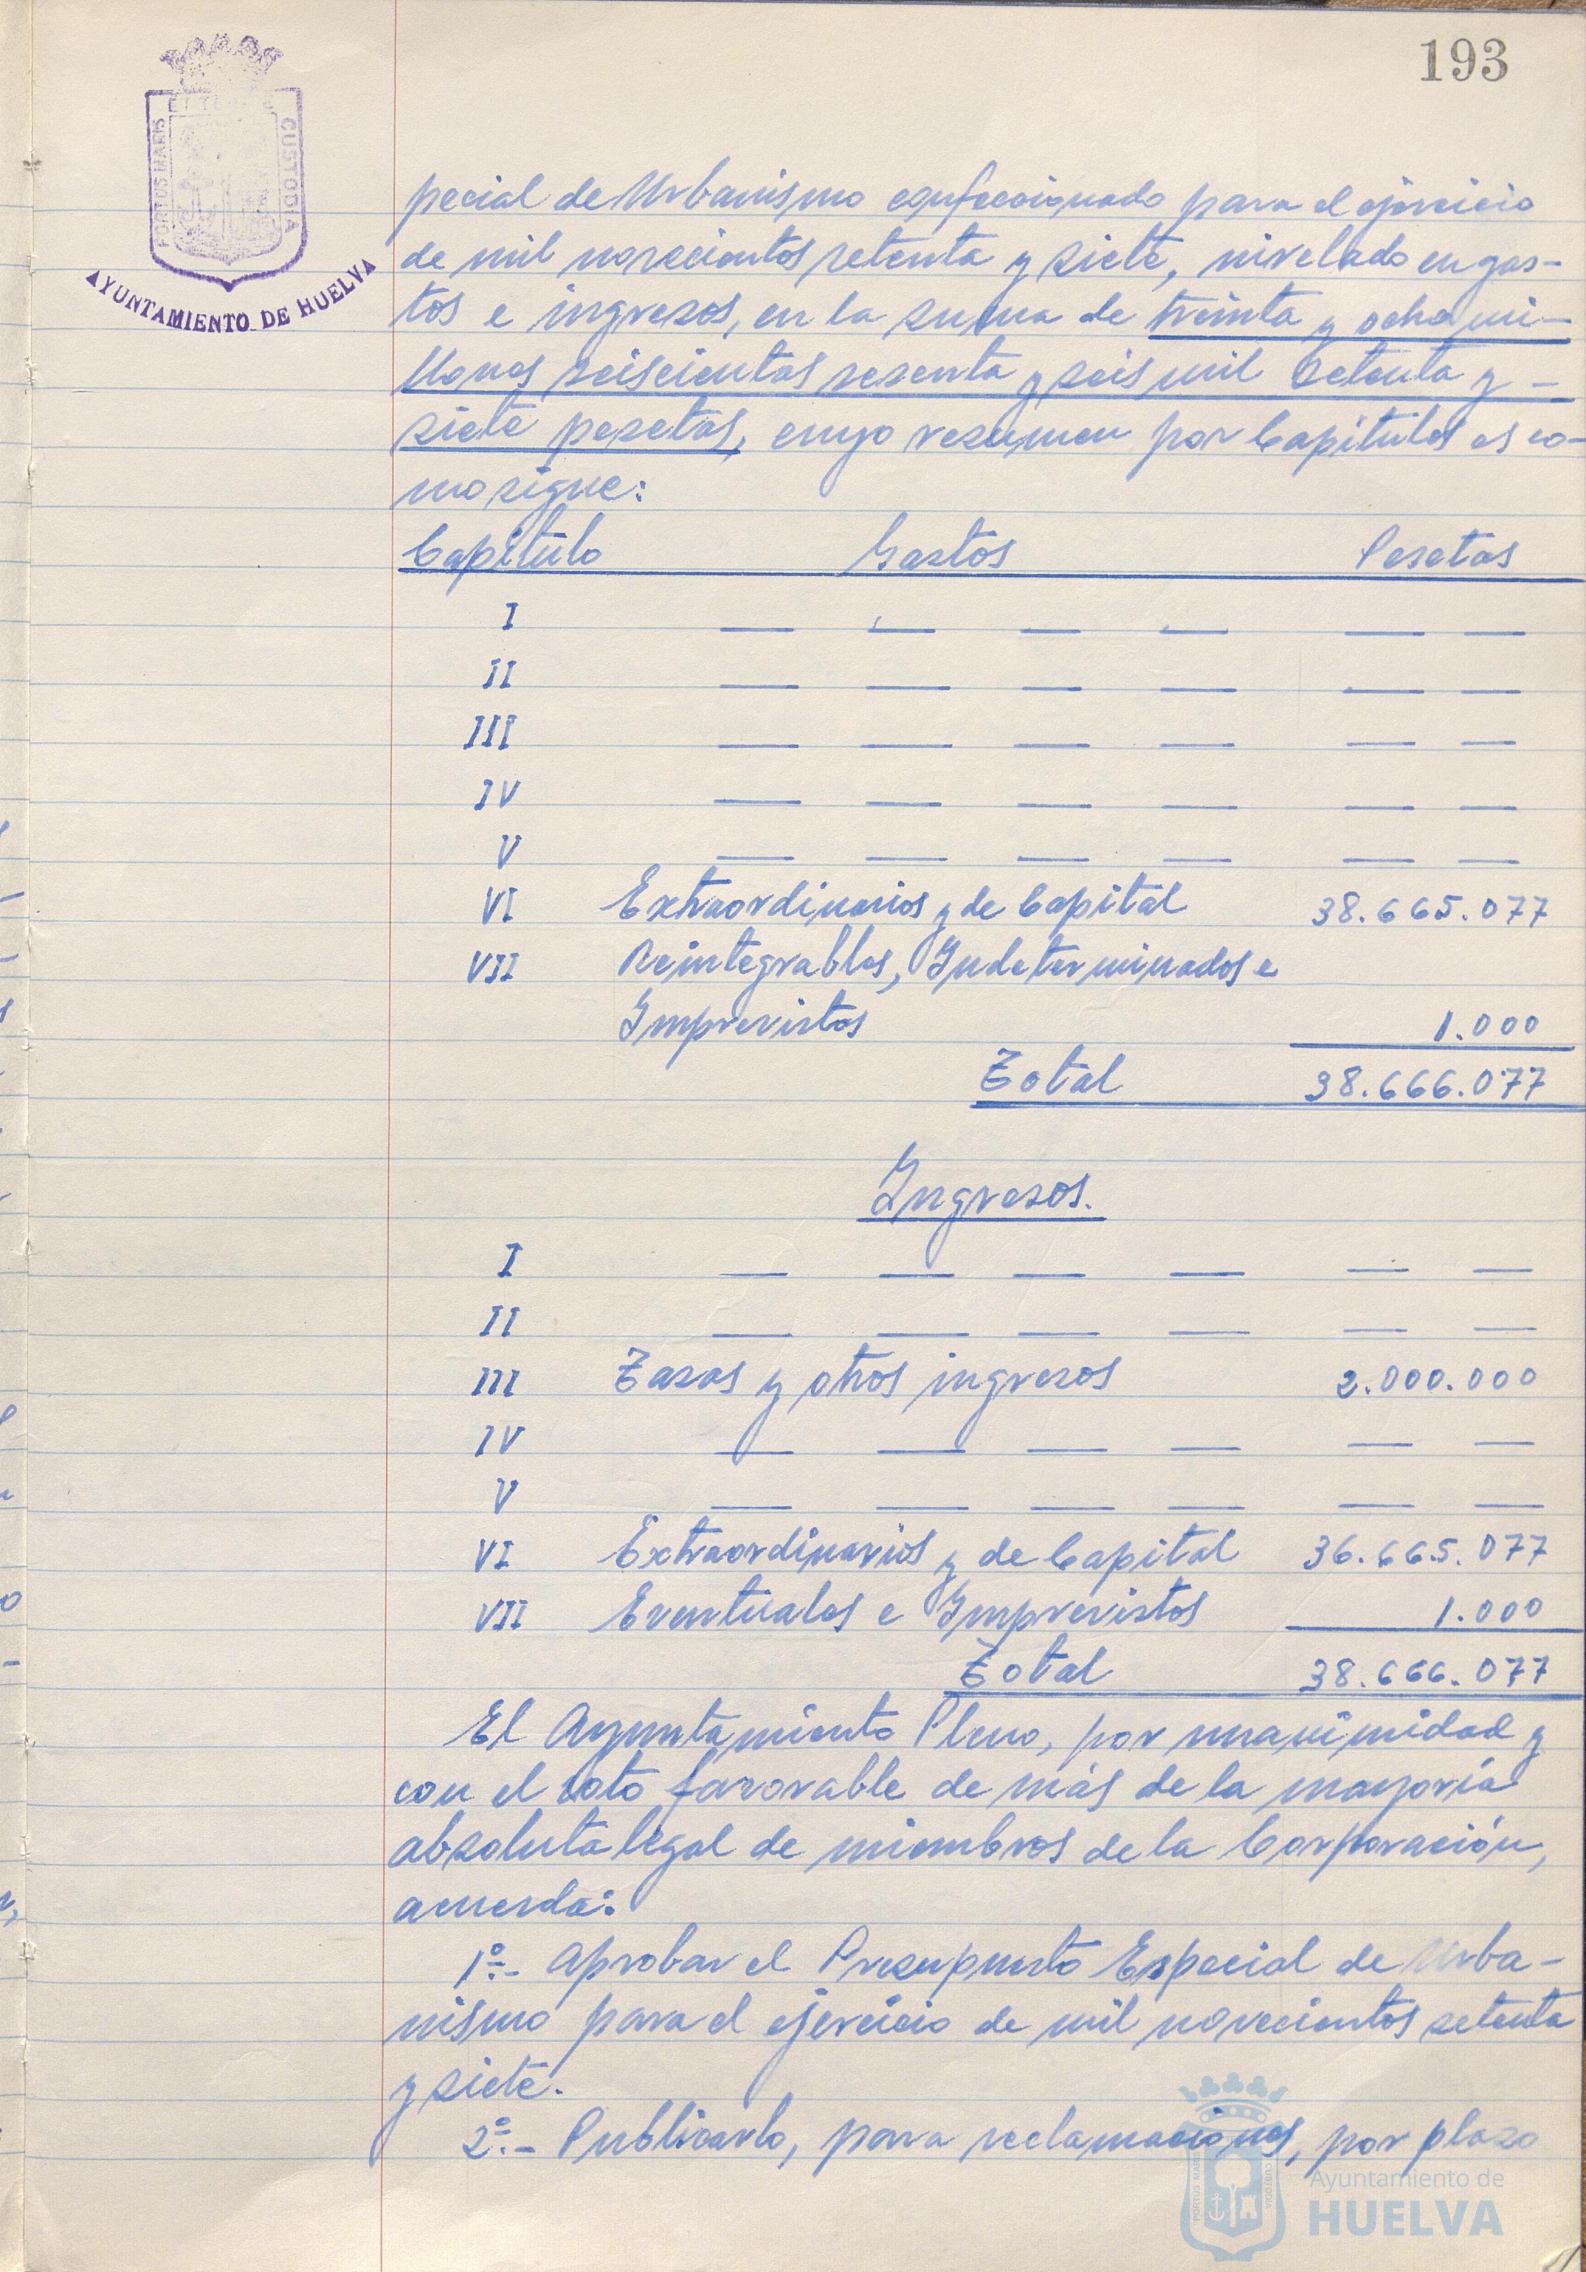 193
ET TERRAE
PORTUS MARIS
CUSTODIA
AYUNTAMIENTO DE HUELVA
pecial de Urbanismo confeccionado para el ejercicio
de mil novecientos setenta y siete, nivelado en gas-
tos e ingresos, en la suma de treinta y ocho mi-
llones seiscientas sesenta y seis mil setenta y -
siete pesetas, cuyo resumen por Capítulos es co-
mo sigue:
Capítulo Gastos Pesetas
I — — — — — —
II — — — — — —
III — — — — — —
IV — — — — — —
V — — — — — —
VI Extraordinarios y de Capital 38.665.077
VII Reintegrables, Indeterminados e
Imprevistos 1.000
Total 38.666.077
Ingresos.
I — — — — — —
II — — — — — —
III Tasas y otros ingresos 2.000.000
IV — — — — — —
V — — — — — —
VI Extraordinarios y de Capital 36.665.077
VII Eventuales e Imprevistos 1.000
Total 38.666.077
El Ayuntamiento Pleno, por unanimidad y
con el voto favorable de más de la mayoría
absoluta legal de miembros de la Corporación,
acuerda:
1º.- Aprobar el Presupuesto Especial de Urba-
nismo para el ejercicio de mil novecientos setenta
y siete.
2º.- Publicarlo, para reclamaciones, por plazo
PORTUS MARIS
CUSTODIA
Ayuntamiento de
HUELVA